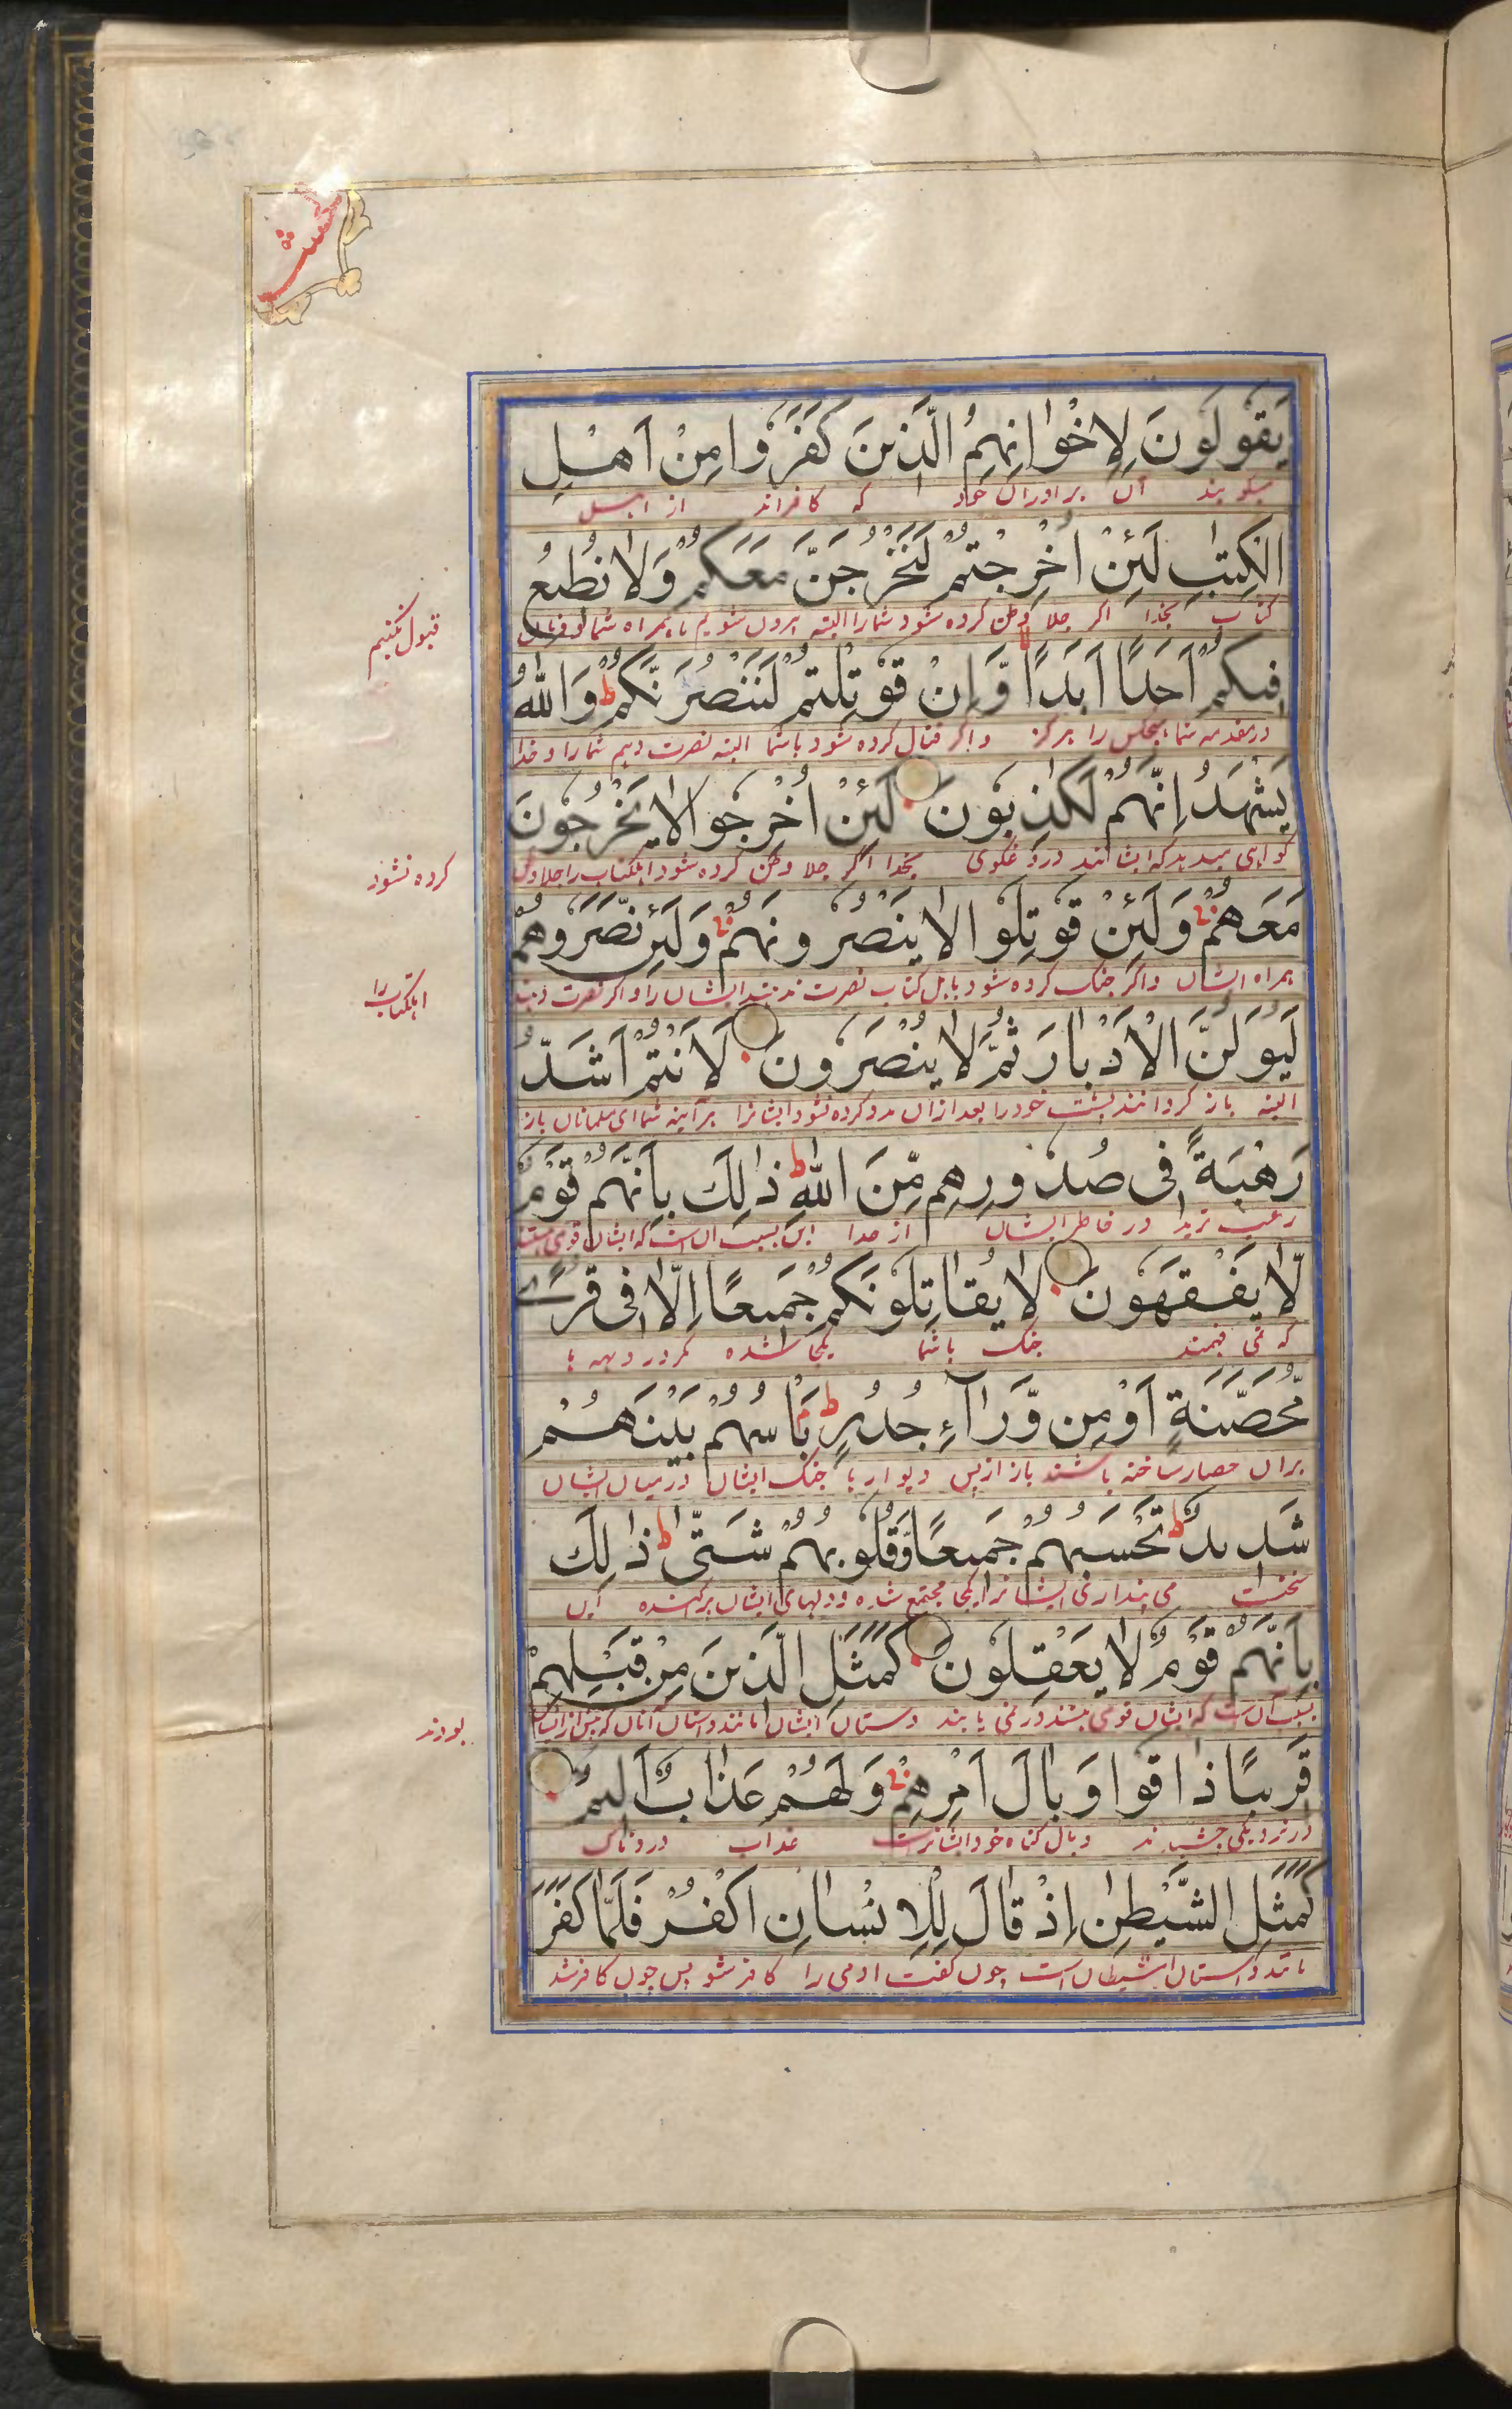 يَقُولُونَ لِإِخْوَانِهِمُ الَّذِينَ كَفَرُوا مِنْ أَهْلِ
میگویند آن برادران خود که کافراند از اهل
الْكِتٰبِ لَئِنْ أُخْرِجْتُمْ لَنَخْرُجَنَّ مَعَكُمْ وَلَا نُطِيعُ
کتاب بخدا اگر جلا وطن کرده شود شمارا البته بیرون شویم ما همراه شما و فرمان
قبول نکنیم
فِيكُمْ أَحَدًا أَبَدًا وَّإِنْ قُوتِلْتُمْ لَنَنْصُرَنَّكُمْ ط وَاللّٰهُ
در مقدمه شما هیچکس را هرگز و اگر قتال کرده شود باشما البته نصرت دهیم شمارا و خدا
يَشْهَدُ إِنَّهُمْ لَكٰذِبُونَ لَئِنْ أُخْرِجُوا لَا يَخْرُجُونَ
گواهی میدهد که ایشانند دروغگوی بخدا اگر جلا وطن کرده شود اهلکتاب را جلا وطن
کرده نشود
مَعَهُمْ وَلَئِنْ قُوتِلُوا لَا يَنْصُرُونَهُمْ وَلَئِنْ نَّصَرُوهُمْ
همراه ایشان و اگر جنگ کرده شود باهل کتاب نصرت ندهند ایشان را و اگر نصرت دهند
اهلکتاب را
لَيُوَلُّنَّ الْأَدْبَارَ ثُمَّ لَا يُنْصَرُونَ لَأَنْتُمْ أَشَدُّ
البته باز گردانند پشت خود را بعد ازان مدد کرده نشود ایشانرا هر آینه شما ای مسلمانان باز
رَهْبَةً فِي صُدُورِهِم مِّنَ اللّٰهِ ط ذٰلِكَ بِأَنَّهُمْ قَوْمٌ
در خاطر ایشان از خدا این بسبب آن است که ایشان قومی هستند
لَّا يَفْقَهُونَ لَا يُقَاتِلُونَكُمْ جَمِيعًا إِلَّا فِي قُرًى
که نمی فهمند جنگ باشما یکجا شده مگر در دیهه ها
مُّحَصَّنَةٍ أَوْ مِن وَّرَاءِ جُدُرٍ ط بَأْسُهُمْ بَيْنَهُمْ
بران حصار ساخته باشند باز از پس دیوار ها جنگ ایشان درمیان ایشان
شَدِيدٌ ط تَحْسَبُهُمْ جَمِيعًا وَّقُلُوبُهُمْ شَتّٰى ط ذٰلِكَ
سختست می پنداری ایشانرا یکجا مجتمع شده و دلهای ایشان پراگنده این
بِأَنَّهُمْ قَوْمٌ لَا يَعْقِلُونَ كَمَثَلِ الَّذِينَ مِنْ قَبْلِهِمْ
بسبب آن است که ایشان قومی هستند در نمی یابند داستان ایشان مانند داستان آنان که پیش از ایشان
بودند
قَرِيبًا ذَاقُوا وَبَالَ أَمْرِهِمْ وَلَهُمْ عَذَابٌ أَلِيمٌ
در نزدیکی چشیدند وبال گناه خود ایشانرست عذاب دردناک
كَمَثَلِ الشَّيْطٰنِ إِذْ قَالَ لِلْإِنْسَانِ اكْفُرْ فَلَمَّا كَفَرَ
مانند داستان شیطان است چون گفت آدمی را کافر شو پس چون کافر شد